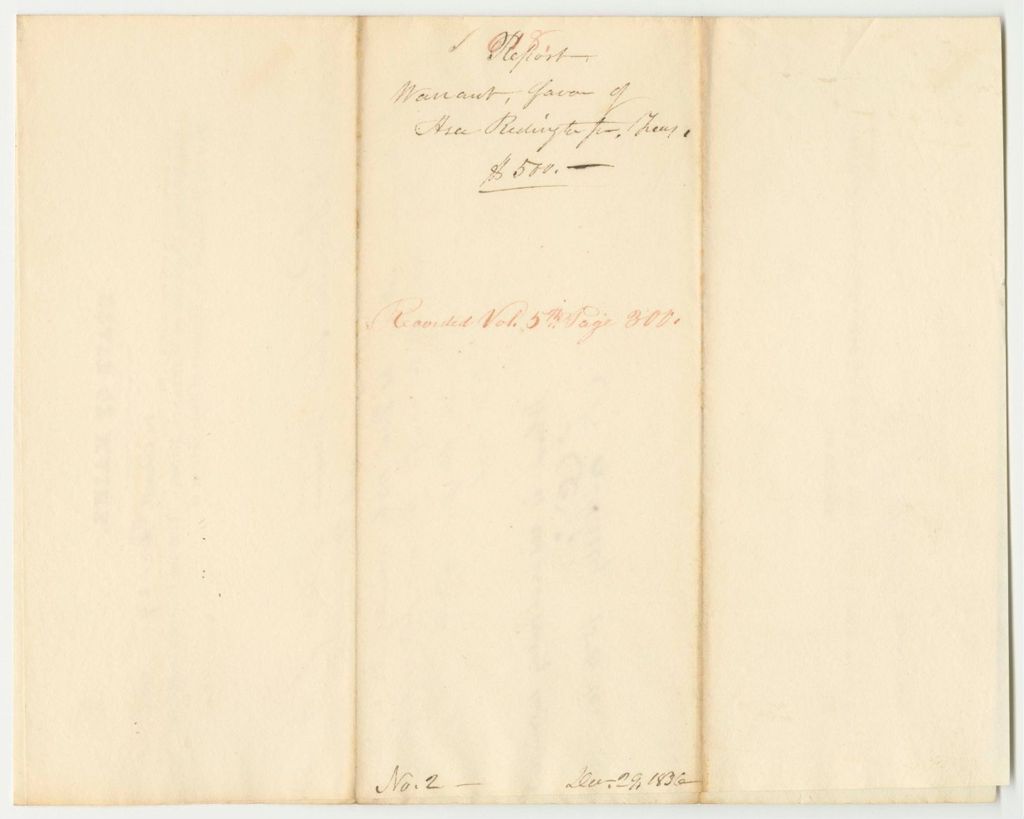 Report
Warrant, favor of
Asa Redington Jr. Treas.
$500.—
Recorded Vol. 5th Page 300.
No. 2 —
Dec. 29, 1836